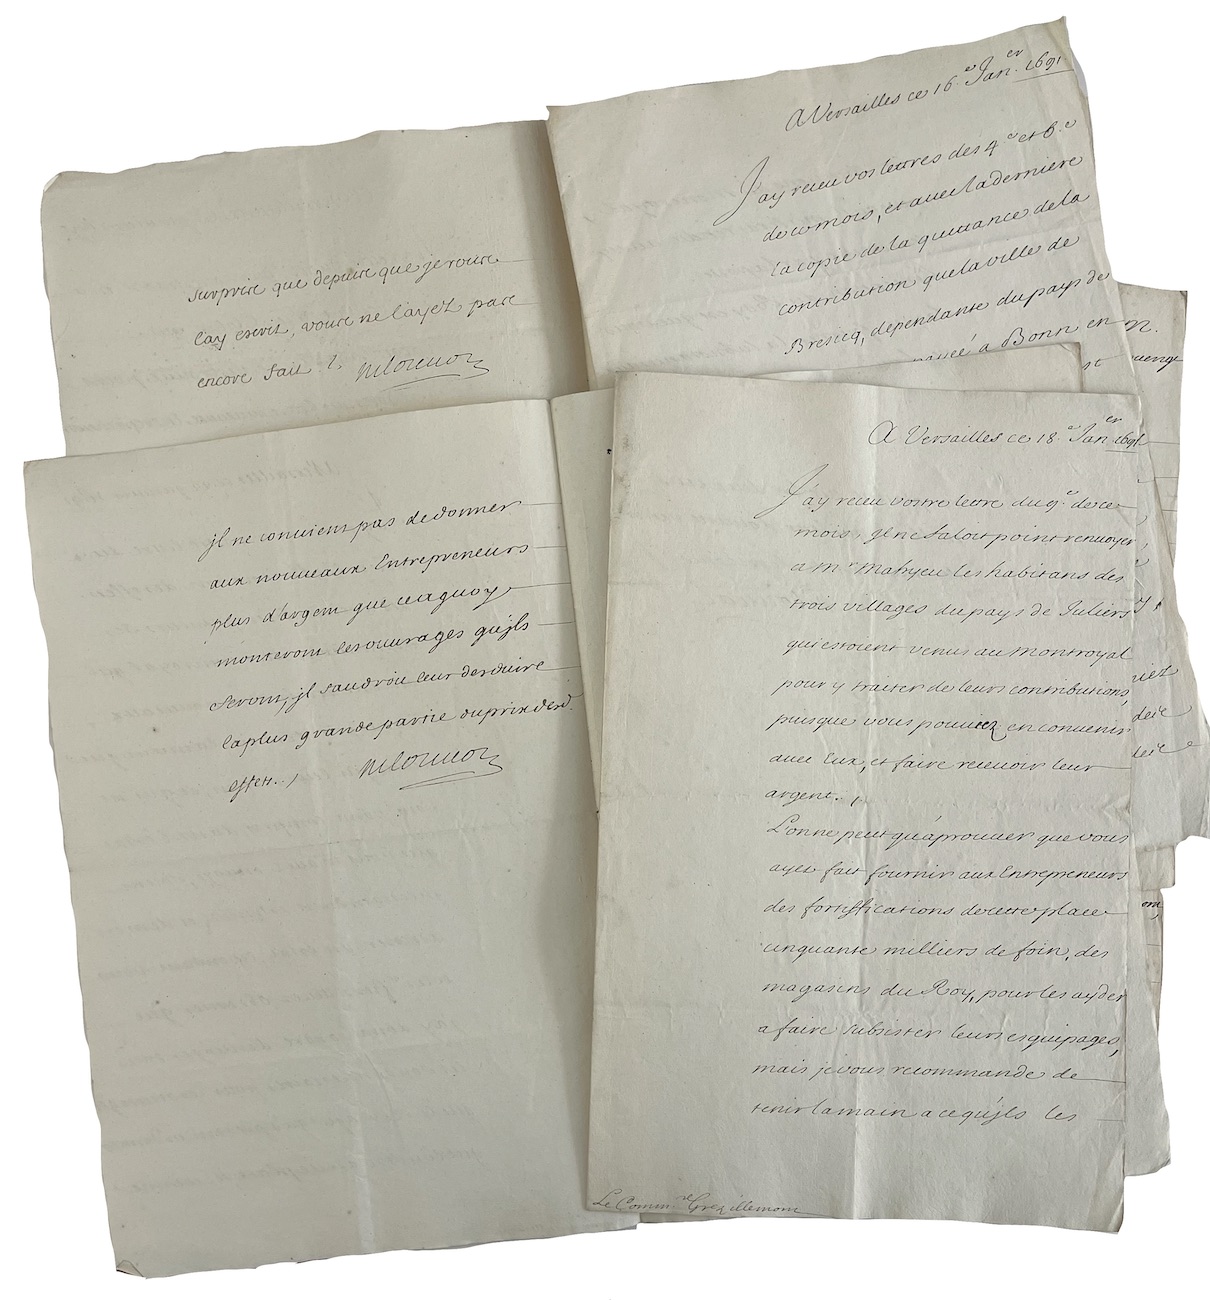 surprire que depuire que je voure
l'ay escrit, voure ne l'ayez pare
encore fait
A Versailles ce 16.e Jan.er 1691
J'ay receu vos lettres des 4.e et 6.e
de ce mois, et avec la derniere
la copie de la quittance de la
contribution que la ville de
Bresicq, dependante du pays de
payée a Bonn en
jl ne convient pas de donner
aux nouveaux Entrepreneurs
plus d'argent que ce a quoy
monteront les ouvrages qu'jls
feront, jl faudroit leur desduire
la plus grande partie du prix desd.
effets.
A Versailles ce 18.e Jan.er 1691
J'ay receu vostre lettre du 9.e de ce
mois, Jl ne faloit point renvoyer
a Mr. Mahyeu les habitans des
trois villages du pays de Juliers
qui estoient venus au Montroyal
pour y traiter de leurs contributions,
puisque vous pouviez en convenir
avec Eux, et faire recevoir leur
argent.
L'on ne peut qu'aprouver que vous
ayez fait fournir aux Entrepreneurs
des fortiffications de cette place
cinquante milliers de foin, des
magasins du Roy, pour les ayder
a faire subsister leurs esquipages,
mais je vous recommande de
tenir la main a ce qu'jls les
Le Comm.re Grezillemont